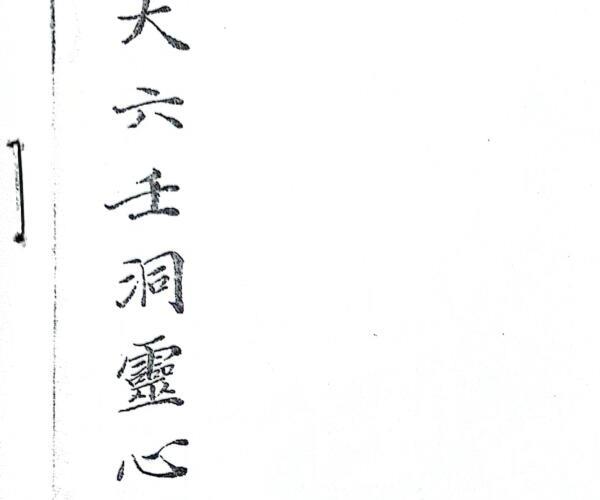 大六壬洞靈心